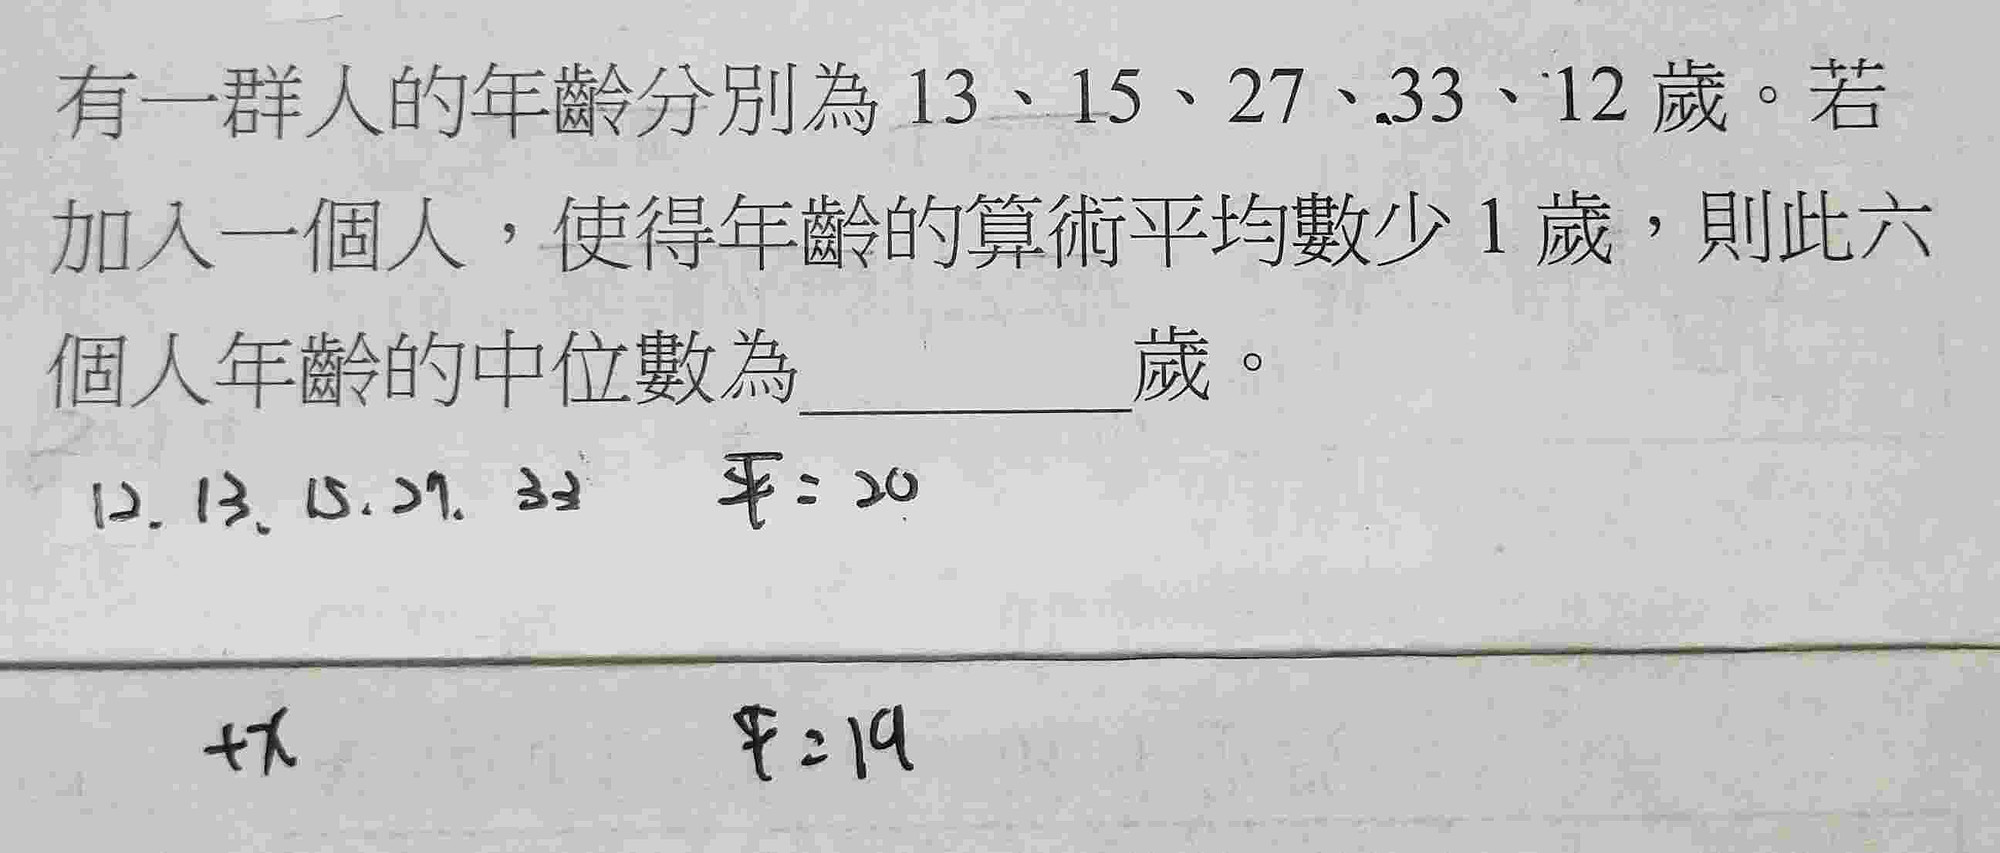 有一群人的年齡分別為 13、15、27、33、12 歲。若
加入一個人，使得年齡的算術平均數少 1 歲，則此六
個人年齡的中位數為________歲。
12. 13、15. 27. 33 平 = 20
+x 平 = 19